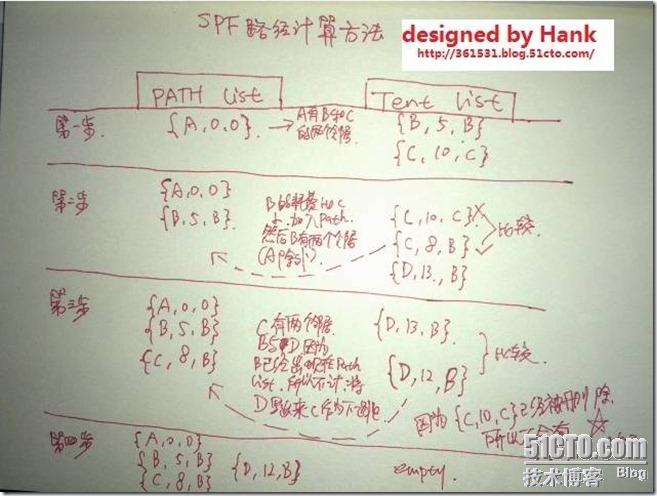 SPF路径计算方法
designed by Hank
http://361531.blog.51cto.com/
PATH List
Tent List
第一步
{A,0,0}
A有B和C
的两个邻居
{B,5,B}
{C,10,C}
第二步
{A,0,0}
{B,5,B}
B的耗费比C
小.加入Path.
然后B有两个邻居
(A除外)
{C,10,C}
{C,8,B}
{D,13,B}
比较
第三步
{A,0,0}
{B,5,B}
{C,8,B}
C有两个邻居
B与D 因为
B已经出现在Path
List.所以不计.将
D
{D,13,B}
{D,12,B}
比较
因为{C,10,C}已经被删除
所以
第四步
{A,0,0}
{B,5,B}
{C,8,B}
{D,12,B}
empty.
51CTO.com
技术博客 Blog